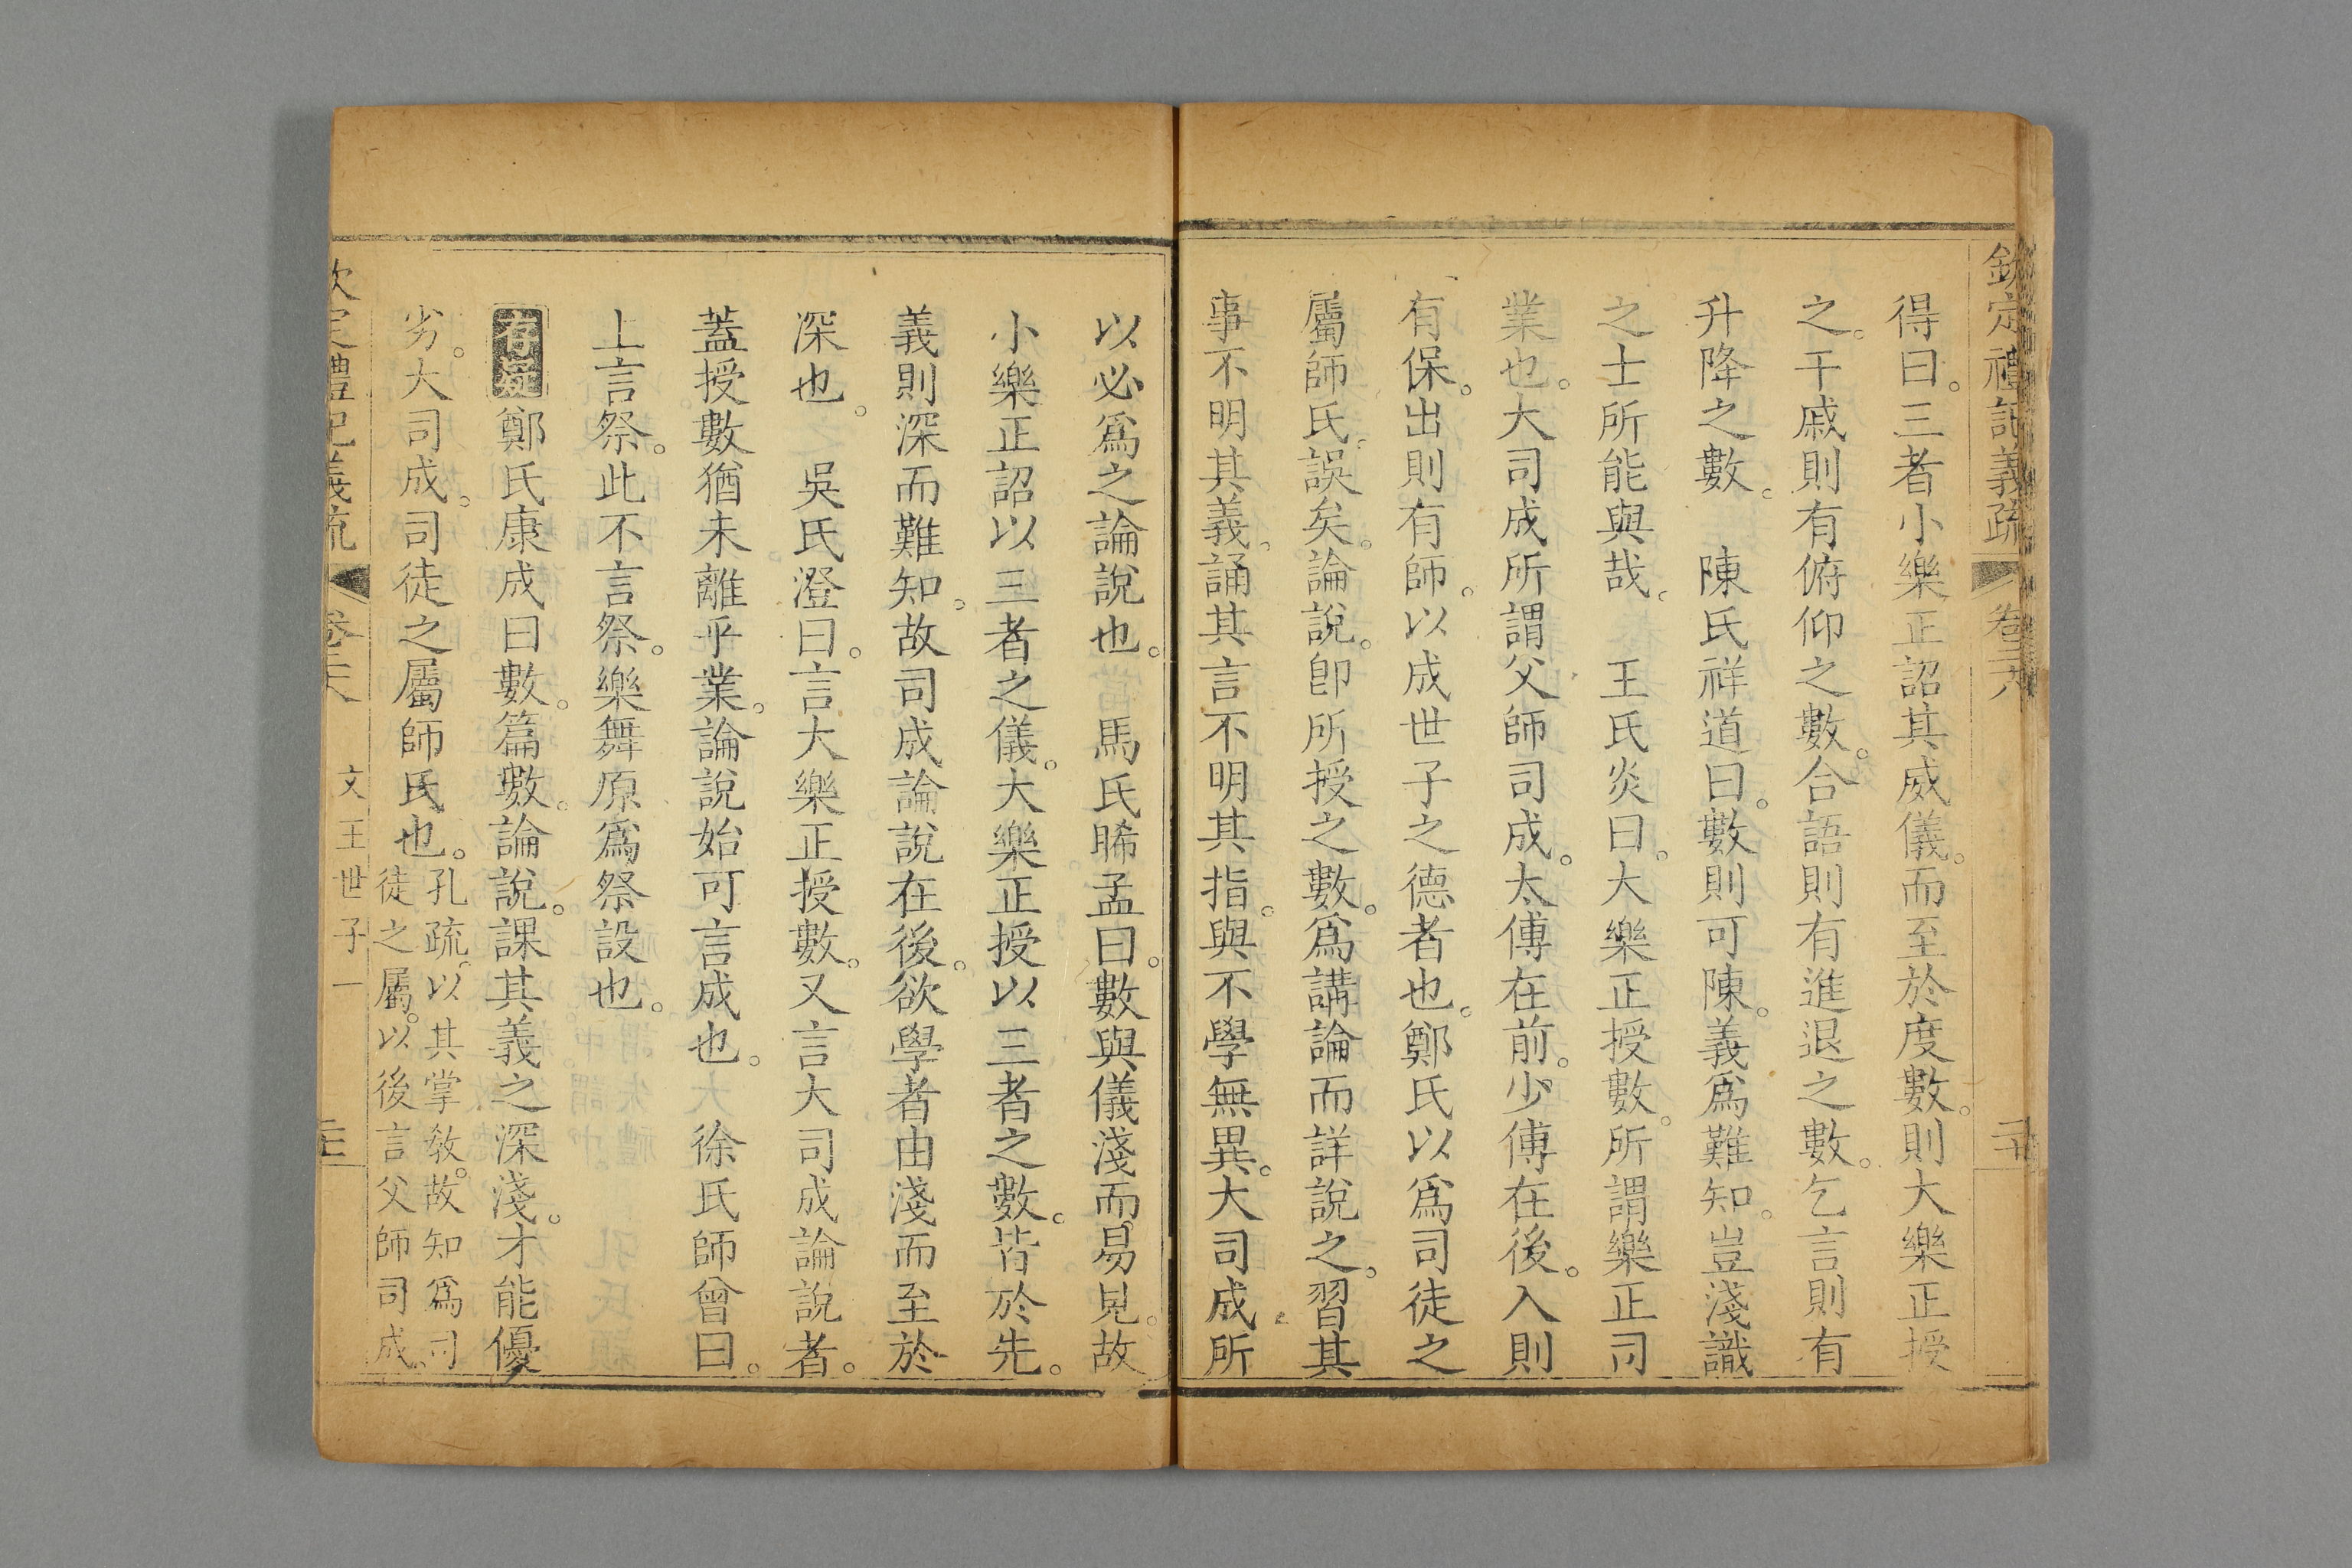 欽定禮記義疏 卷二十八 二十
得曰。三者小樂正詔其威儀。而至於度數。則大樂正授
之。干戚則有俯仰之數。合語則有進退之數。乞言則有
升降之數。 陳氏祥道曰。數則可陳。義爲難知。豈淺識
之士所能與哉。 王氏炎曰。大樂正授數。所謂樂正司
業也。大司成所謂父師司成。太傅在前。少傅在後。入則
有保。出則有師。以成世子之德者也。鄭氏以爲司徒之
屬師氏。誤矣。論說。卽所授之數。爲講論而詳說之。習其
事不明其義。誦其言不明其指。與不學無異。大司成所
以必爲之論說也。 馬氏睎孟曰。數與儀淺而易見。故
小樂正詔以三者之儀。大樂正授以三者之數。皆於先。
義則深而難知。故司成論說在後。欲學者由淺而至於
深也。 吳氏澄曰。言大樂正授數。又言大司成論說者。
蓋授數猶未離乎業。論說始可言成也。 徐氏師曾曰。
上言祭。此不言祭。樂舞原爲祭設也。
存疑鄭氏康成曰數。篇數。論說。課其義之深淺。才能優
劣。大司成。司徒之屬師氏也。孔疏。以其掌敎。故知爲司
徒之屬。以後言父師司成。
欽定禮記義疏 卷二十八 文王世子一 二十